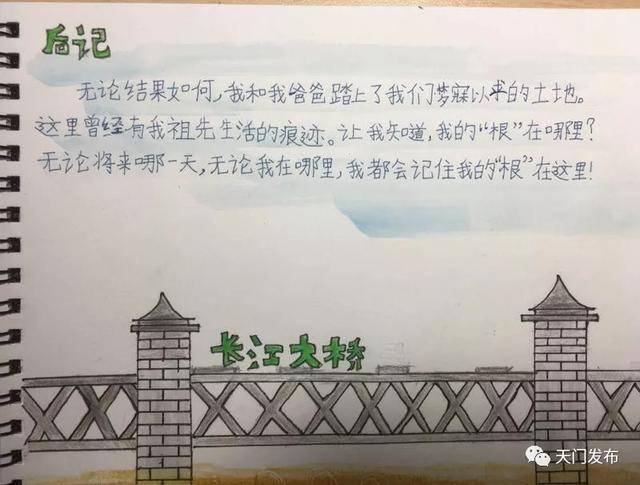 后记
无论结果如何，我和我爸爸踏上了我们梦寐以求的土地。
这里曾经有我祖先生活的痕迹。让我知道，我的“根”在哪里？
无论将来哪一天，无论我在哪里，我都会记住我的“根”在这里！
长江大桥
天门发布